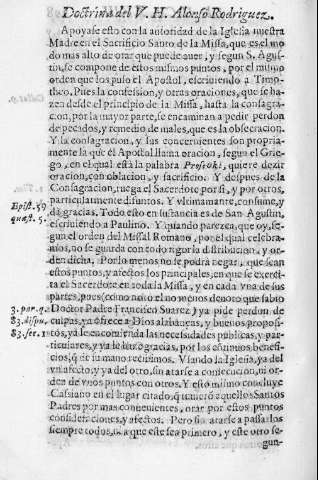 Doctrina del V. H. Alonso Rodriguez.
Apoyase esto con la autoridad de la Iglesia nuestra
Madre en el Sacrificio Santo de la Missa, que es el mo
do mas alto de orar que puede auer, y segun S. Agus
tin, se compone de estos mismos puntos, por el mismo
orden que los puso el Apostol, escriuiendo a Timo-
theo. Pues la confession, y otras oraciones, que se ha-
zen desde el principio de la Missa, hasta la consagra-
cion, por la mayor parte, se encaminan a pedir perdon
de pecados, y remedio de males, que es la obsecracion.
Y la consagracion, y sus concernientes son propria-
mente la que el Apostol llama oracion, segun el Grie-
go, en el qual està la palabra Proseuki, que es dezir
oracion, con oblacion, y sacrificio. Y despues de la
Consagracion, ruega el Sacerdote por si, y por otros,
particularmente difuntos. Y vltimamante, consume, y
Epist. 59. dà gracias. Todo esto en sustancia es de San Agustin,
quæst. 5. escriuiendo a Paulino. Y quando parezca, que oy, se-
gun el orden del Missal Romano, por el qual celebra-
mos, no se guarda con todo rigor la distribucion, y or-
den dicha. Por lo menos no se podrà negar, que sean
estos puntos, y afectos los principales, en que se exerci-
ta el Sacerdote en toda la Missa, y en cada vna de sus
partes, pues (como notò el no menos deuoto que sabio
3. par. q. Doctor Padre Francisco Suarez) ya pide perdon de
83. dispu. culpas, ya ofrece a Dios alabanças, y buenos proposi-
83. ser. 1 tos, ya le encomienda las necesidades publicas, y par-
ticulares, y ya le haze gracias, por los continuos benefi-
cios, que de su mano recibimos. Vsando la Iglesia, ya del
vn afecto, y ya del otro, sin atarse a consecucion, ni or-
den de vnos puntos con otros. Y esto mismo concluye
Cassiano en el lugar citado, que tuuierò aquellos Santos
Padres por mas conueniente, orar por estos puntos
consideraciones, y afectos. Pero sin atarse a passarlos
siempre todos, ni a que este sea primero, y este otro se-
gun-